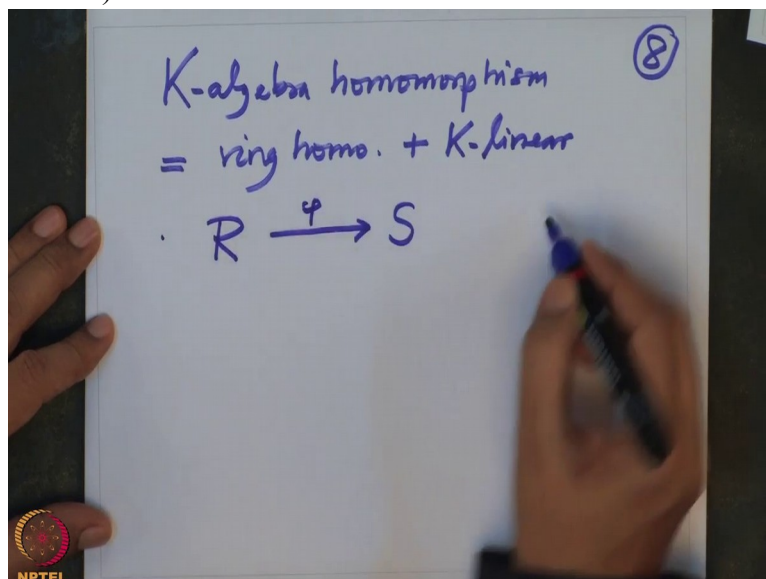 8
K-algebra homomorphism
= ring homo. + K-linear
φ
R → S
NPTEL